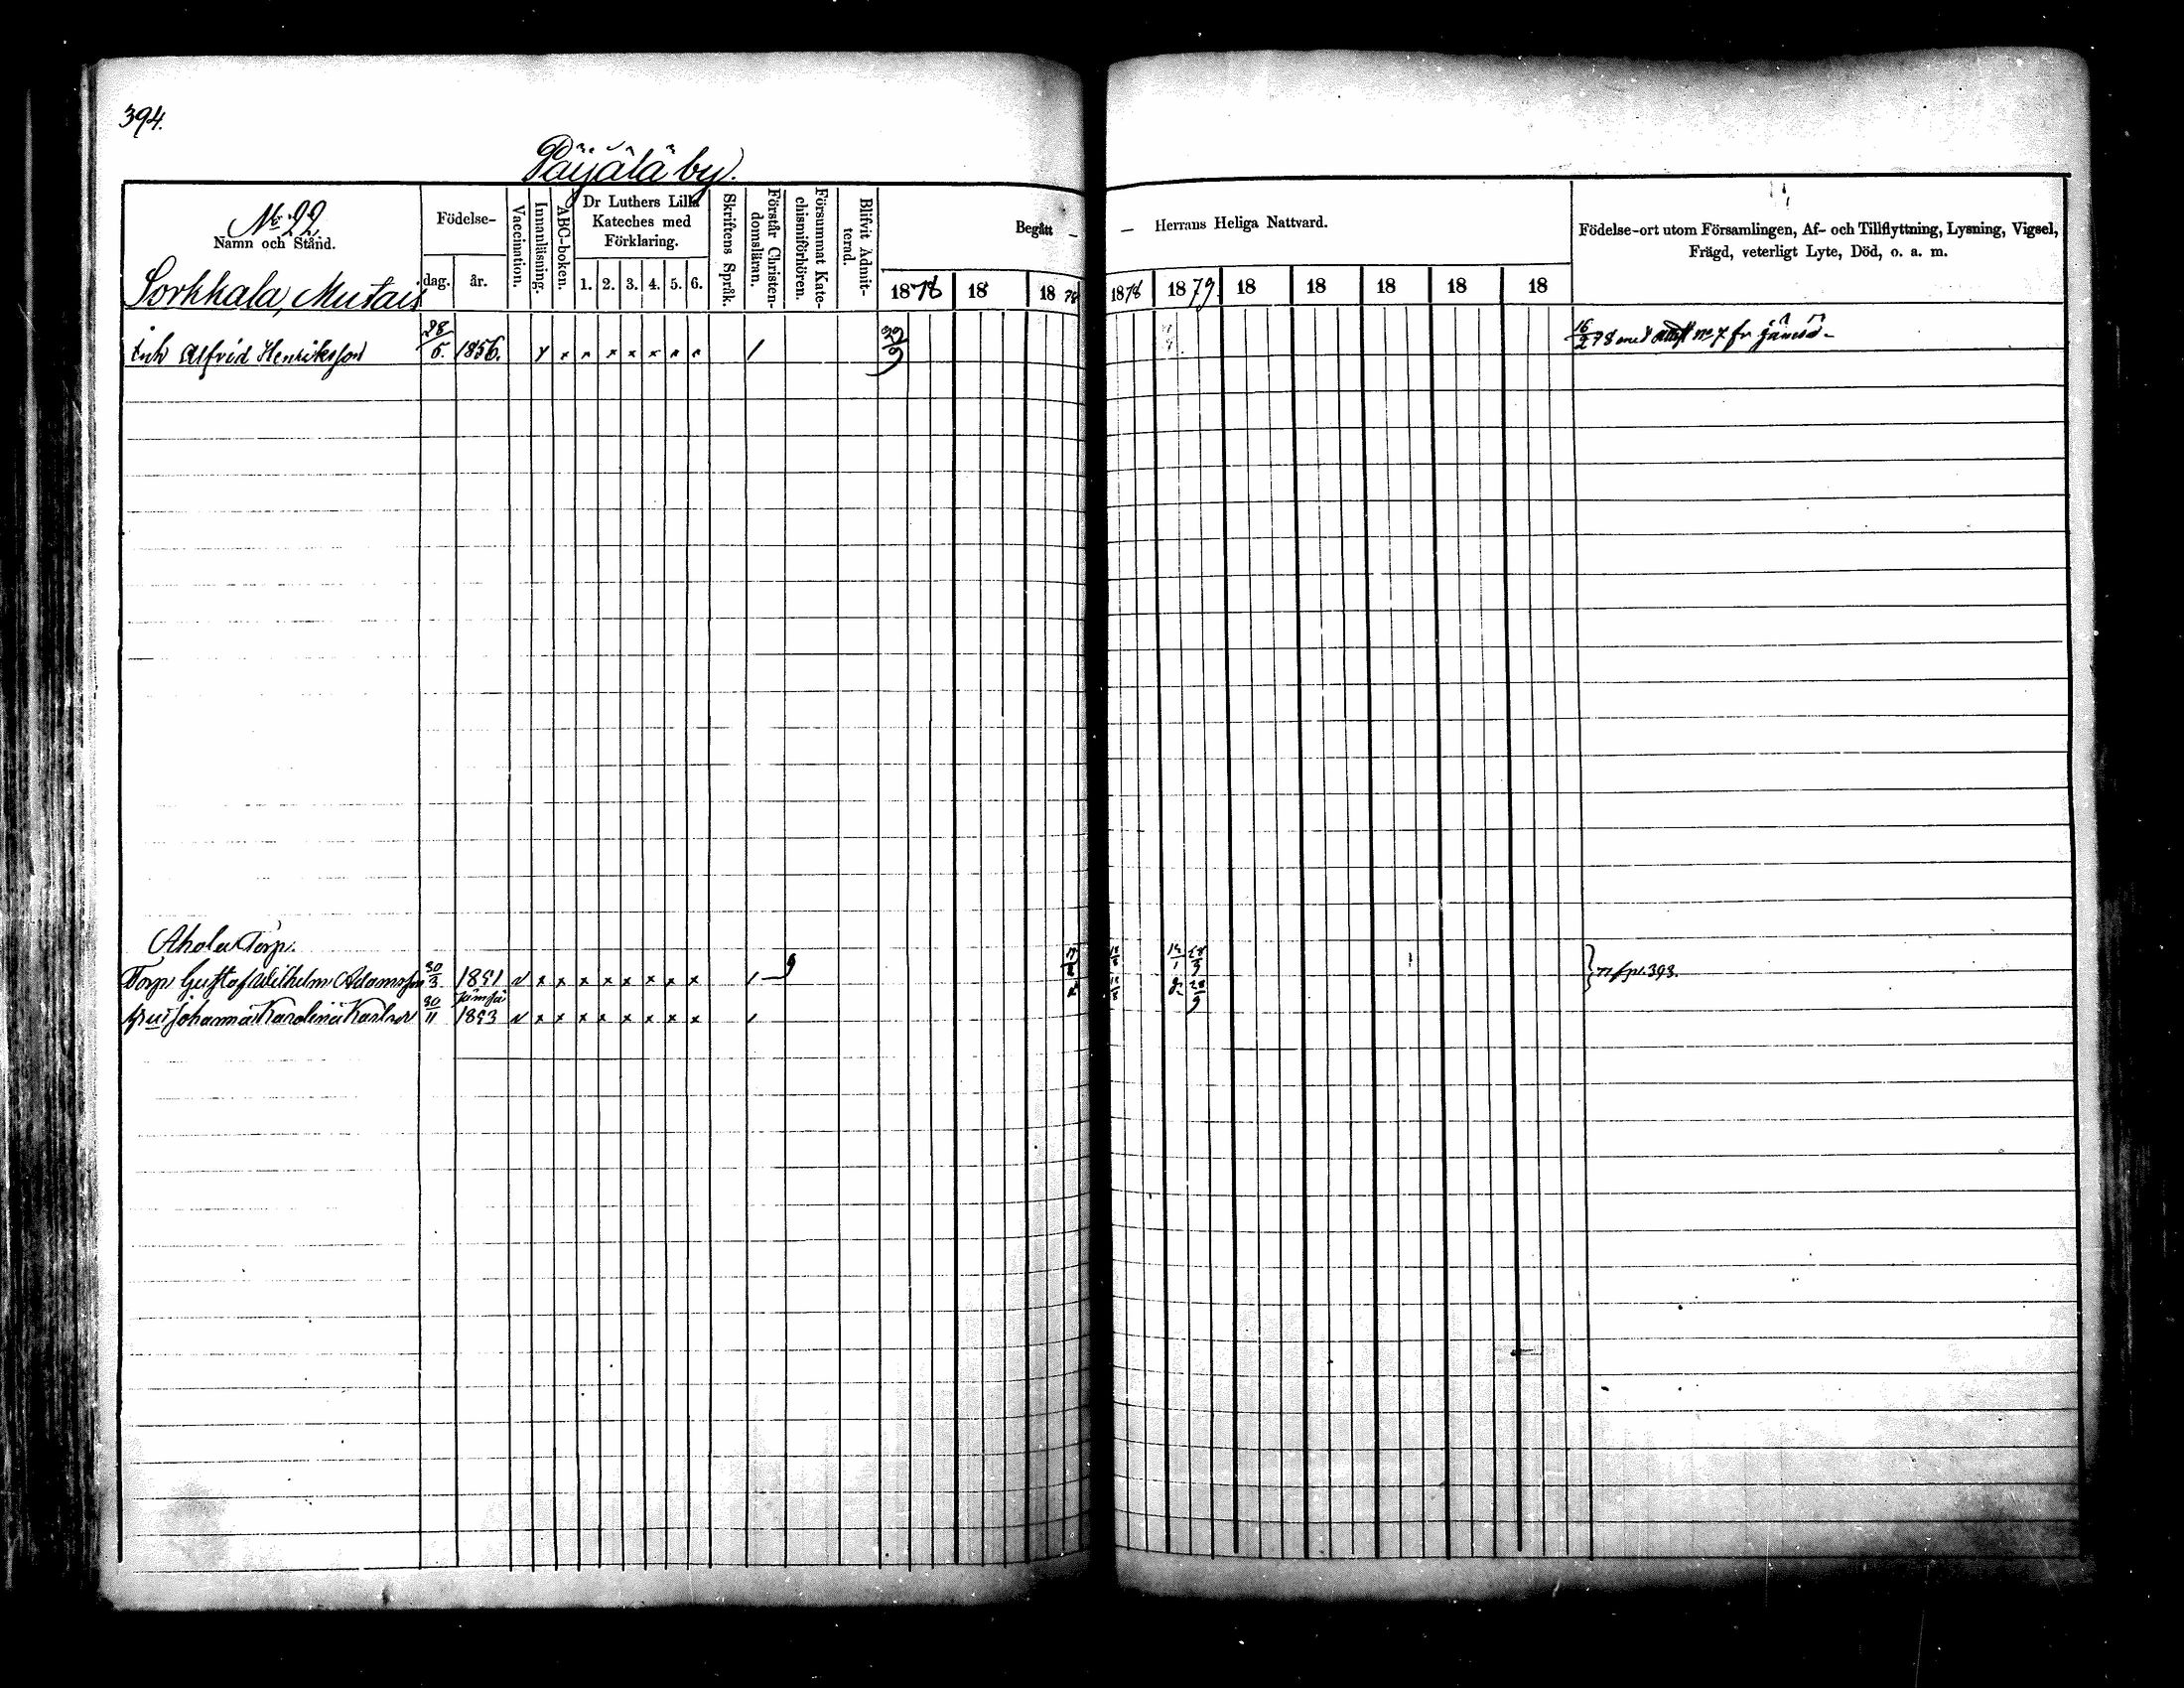 394.
Päijälä by.
No 22.
Namn och Stånd.
Födelse-
dag.
år.
Vaccination.
Innanläsning.
ABC-boken.
Dr Luthers Lilla
Kateches med
Förklaring.
1. 2. 3. 4. 5. 6.
Skriftens Språk.
Förstår Christen-
domsläran.
Försummat Kate-
chismiförhören.
Blifvit Admit-
terad.
Begått —
— Herrans Heliga Nattvard.
1878 18 18 78
1878 1879 18 18 18 18 18
Födelse-ort utom Församlingen, Af- och Tillflyttning, Lysning, Vigsel,
Frägd, veterligt Lyte, Död, o. a. m.
Sorkkala, Mustais
Inh Alfrid Henriksson 28/5. 1856.
16/2 78 med attest no 7 fr Jämsä
Ahola Torp.
Torp Gustaf Wilhelm Adamsson 30/3 1851
Jämsä
hu Johanna Karolina Karlsd 30/11 1853
pi. 393.